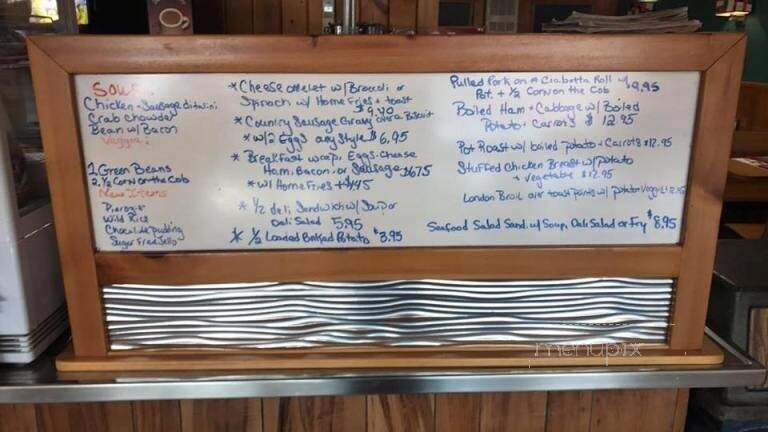 Soup
Chicken-Sausage ditalini
Crab Chowder
Bean w/ Bacon
Veggie:
1 Green Beans
2 1/2 Corn on the Cob
New Items
Pierogie
Wild Rice
Chocolate Pudding
Sugar Free Jello
* Cheese omelet w/ Broccoli or
Spinach w/ Home Fries + toast
$9.40
* Country Sausage Gravy over a Biscuit
* w/ 2 Eggs any Style $6.95
* Breakfast wrap. Eggs. Cheese
Ham. Bacon. or Sausage $6.75
* w/ Home Fries + $1.45
* 1/2 deli Sandwich w/ Soup or
Deli Salad 5.95
* 1/2 Loaded Baked Potato $3.95
Pulled Pork on A Ciabatta Roll w/ $9.95
Pot. + 1/2 Corn on the Cob
Boiled Ham + Cabbage w/ Boiled
Potato + Carrots $12.95
Pot Roast w/ boiled potato + Carrots $12.95
Stuffed Chicken Breast w/ potato
+ vegetable $12.95
London Broil over toast points w/ potato + Veggie $12.95
Seafood Salad Sand. w/ Soup, Deli Salad or Fry $8.95
menupix